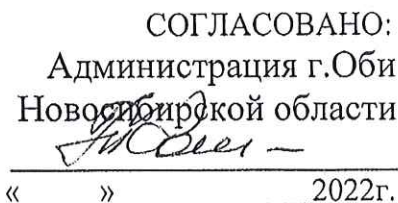 СОГЛАСОВАНО:
Администрация г.Оби
Новосибирской области
« » 2022г.